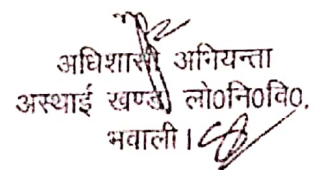 अधिशासी अभियन्ता
अस्थाई खण्ड लो०नि०वि०,
भवाली।